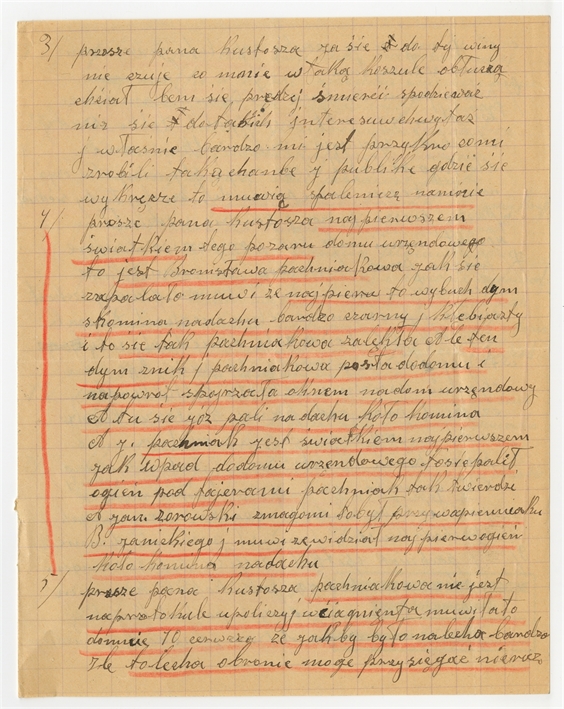 3/ prosze pana kustosza ja sie do ty winy
nie czuje co mnie w taką koszule obłuczą
chciał bem się prędzej śmierci spodziewać
niz sie do takich interesuw chwytaz
j właśnie bardzo mi jest przykro co mi
zrobili taką chanbe j publike gdzie sie
wykręcze to muwią spalemicz na mnie
4/ prosze pana kustosza najpierwszem
światkiem tego pozaru domu urzendowego
to jest Bronisława pachniakowa jak sie
zapalało muwi że najpierw to wybuch dym
s komina na dachu bardzo czarny j kłębiazty
i to sie tak pachniakowa zalękła A le ten
dym znik j pachniakowa poszła do domu i
napowrót spojrzała oknem na dom urzędowy
A tu sie józ pali na dachu koło komina
A j. pachniak jest światkiem najpierwszem
jak wpad do domu urzendowego to sie palił
ogień pod fajerami pachniak tak twierdzi
A jan zorowski z magomi to był przy wapienniku
B. janickiego j muwi ze widział najpierw ogień
koło komina na dachu
5/ prosze pana kustosza pachniakowa nie jest
na protokule u policzyj wciągnienta muwiła to
do mnie 10 cerwcza że jak by było na lecha bardzo
źle to lecha obronie moge przysięgać nie raz